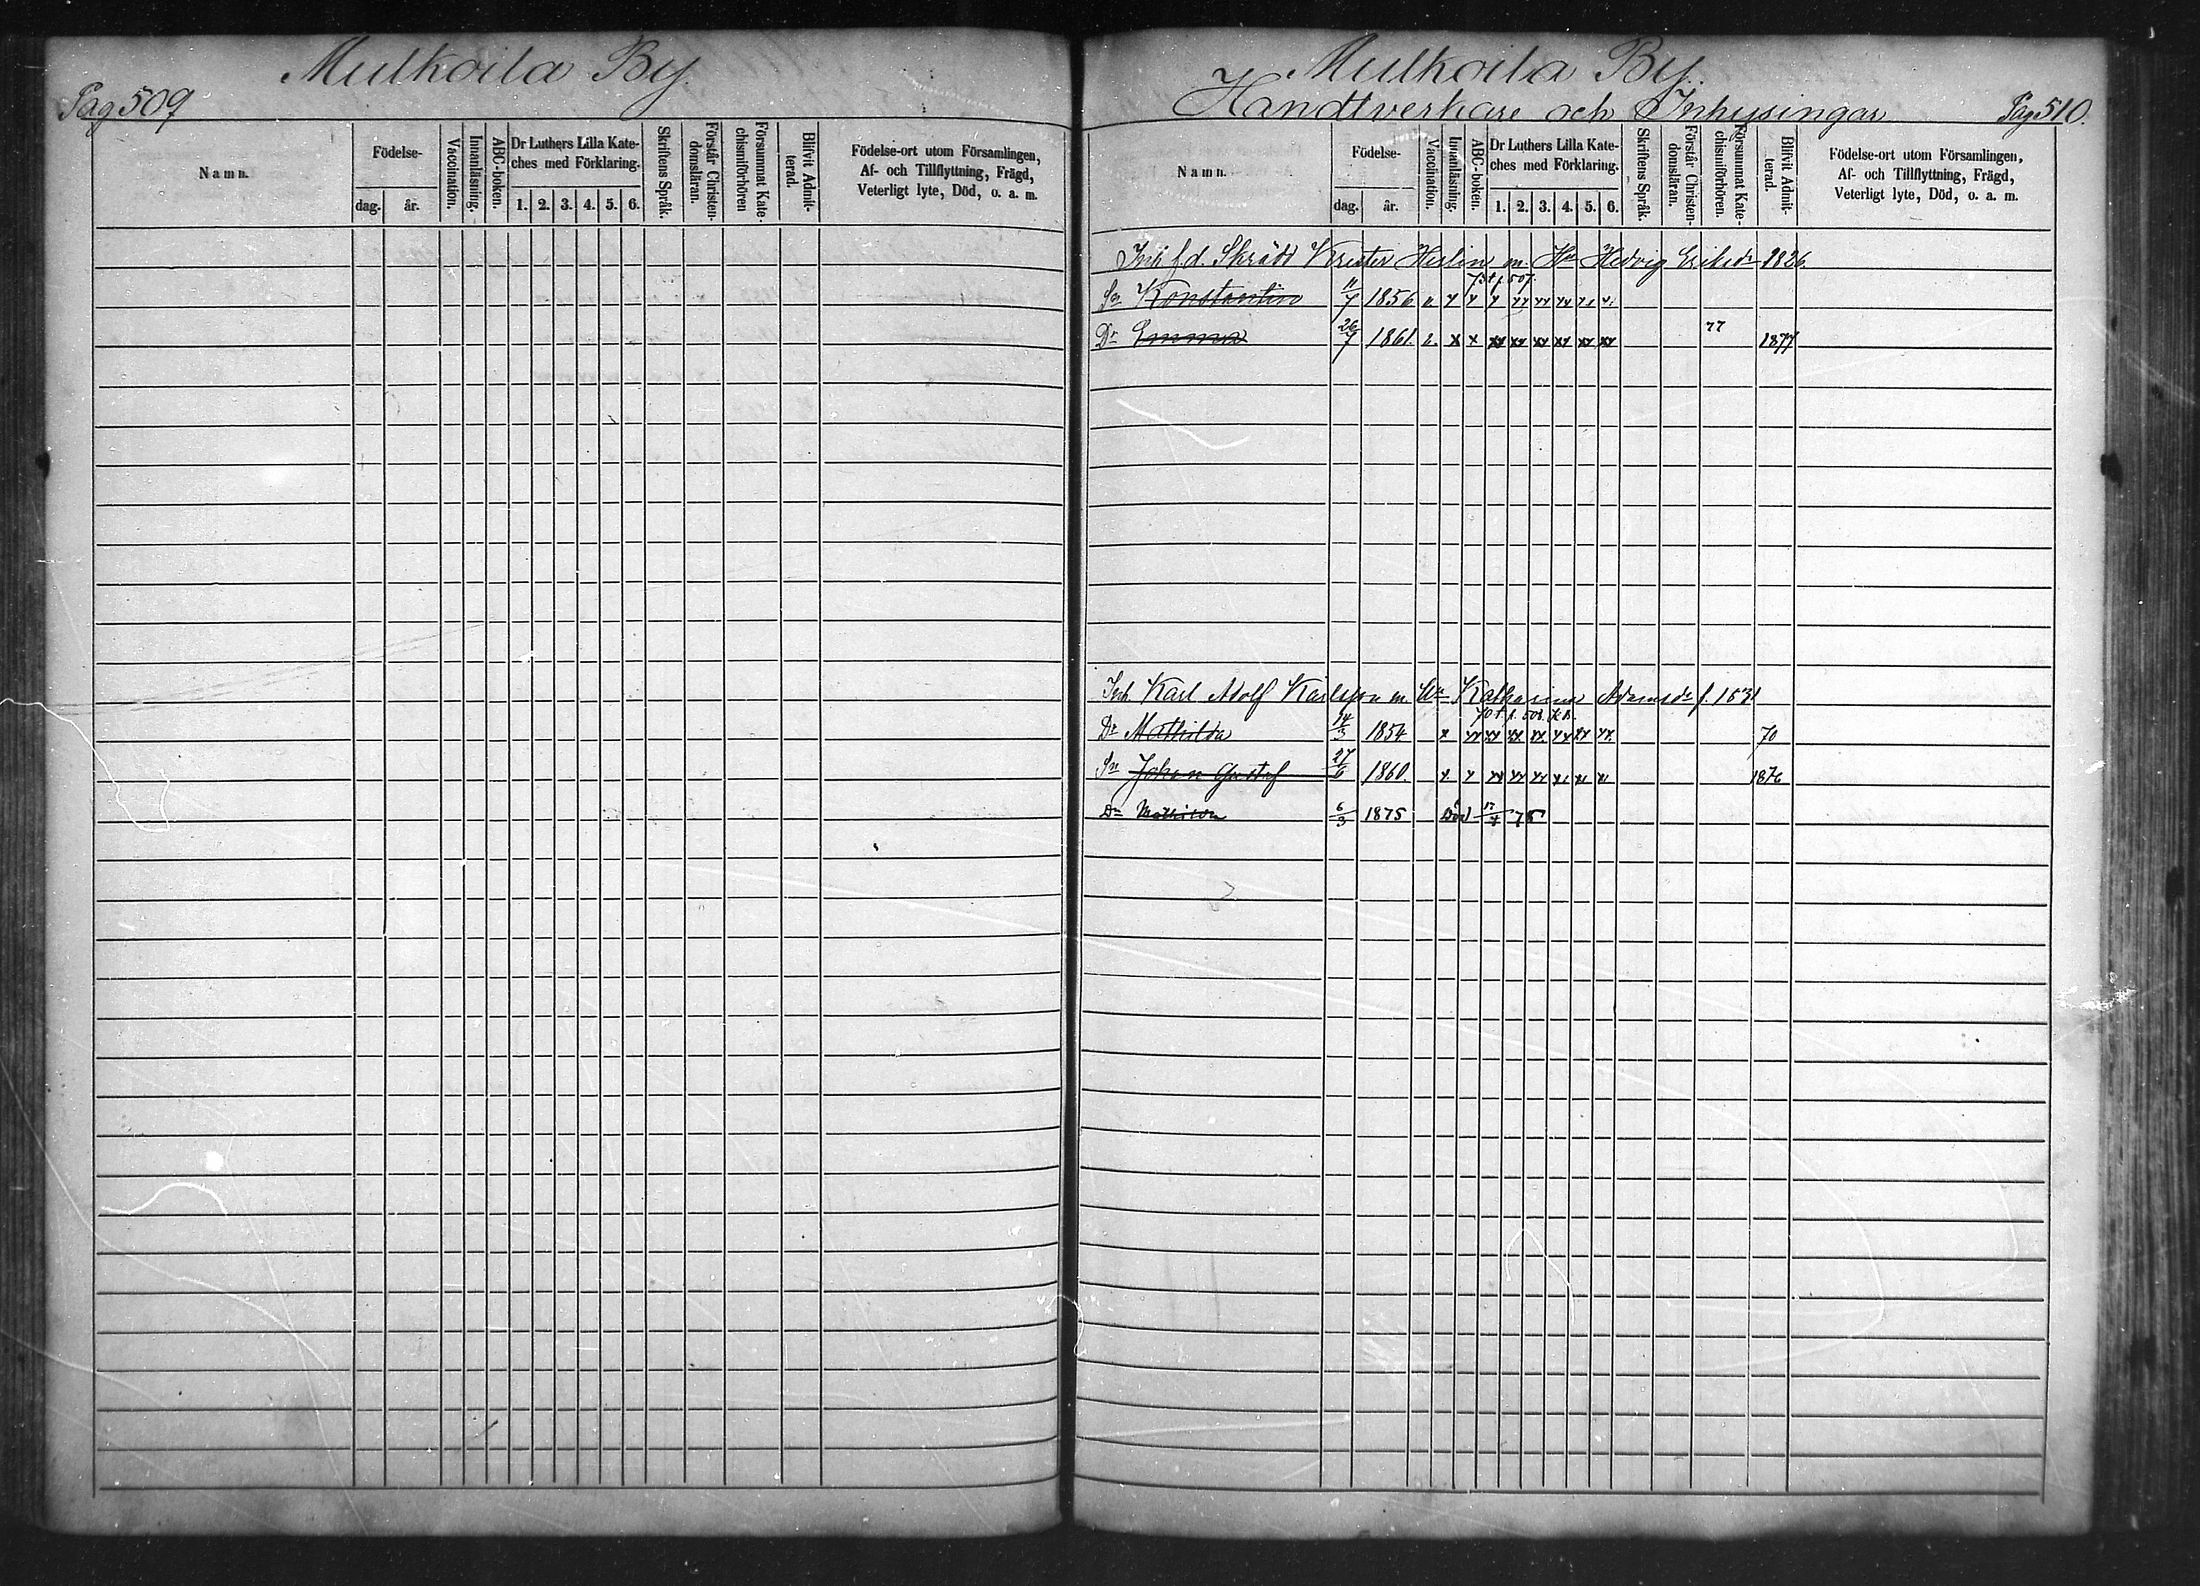 Mulkoila By.
Pag 509
Namn.
Födelse-
dag. år.
Vaccination.
Innanläsning.
ABC-boken.
Dr Luthers Lilla Kate-
ches med Förklaring.
1. 2. 3. 4. 5. 6.
Skriftens Språk.
Förstår Christen-
domsläran.
Försummat Kate-
chismiförhören
Blifvit Admit-
terad.
Födelse-ort utom Församlingen,
Af- och Tillflyttning, Frägd,
Veterligt lyte, Död, o. a. m.
Mulkoila By.
Handtverkare och Inhysingar
Pag 510.
Namn.
Födelse-
dag. år.
Vaccination.
Innanläsning.
ABC-boken.
Dr Luthers Lilla Kate-
ches med Förklaring.
1. 2. 3. 4. 5. 6.
Skriftens Språk.
Förstår Christen-
domsläran.
Försummat Kate-
chismiförhören.
Blifvit Admit-
terad.
Födelse-ort utom Församlingen,
Af- och Tillflyttning, Frägd,
Veterligt lyte, Död, o. a. m.
Inh f.d. Skrädd Krister Herlin m. Hu Hedvig Eriksdr 1826.
Sn Konstantin 11/7 1856
Dr Emma 26/7 1861. x x xx xx xx xx xx xx 77 1877
Inh. Karl Adolf Karlsson m. Hu Katharina Adamsdr f. 1831
70 t. p. 508.
Dr Mathilda 14/3 1854 70
Sn Johan Gustaf 27/6 1860. 1876
Dr Mathilda 6/3 1875 Död 17/4 75